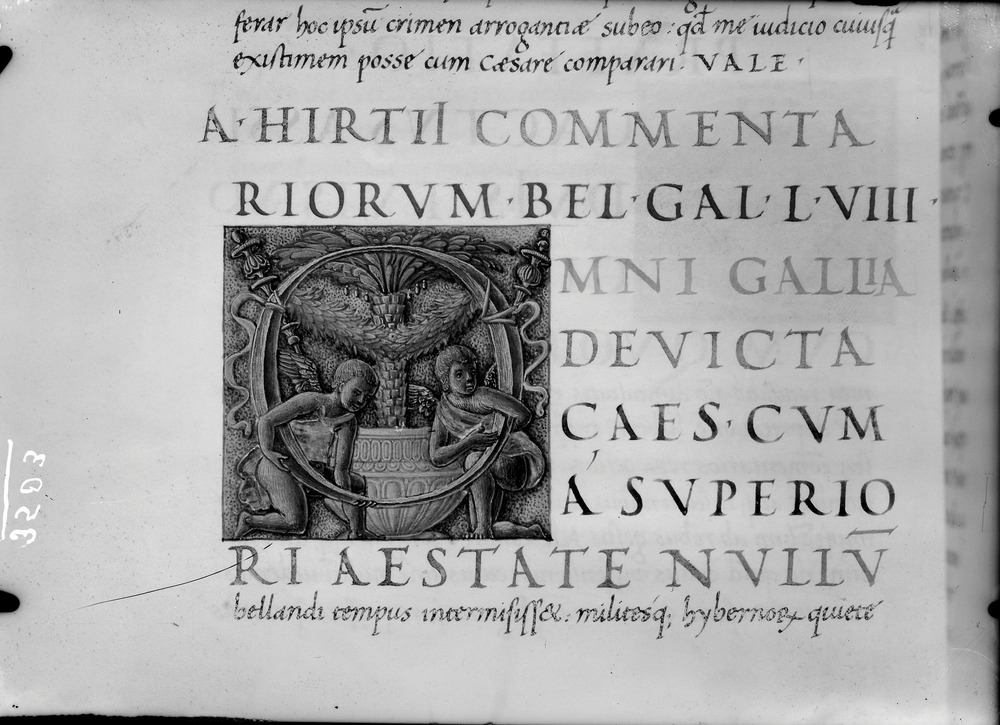 ferar hoc ipsū crimen arroganciæ subeo: qd me iudicio cuiusq
existimem posse cum Cæsare comparari. VALE.
A·HIRTII COMMENTA
RIORVM·BEL·GAL·L·VIII·
OMNI GALLIA
DEVICTA
CAES·CVM
Á SVPERIO
RI AESTATE NVLLV̄
bellandi tempus intermisiss&: militesq; hybernoꝝ quietē
3503